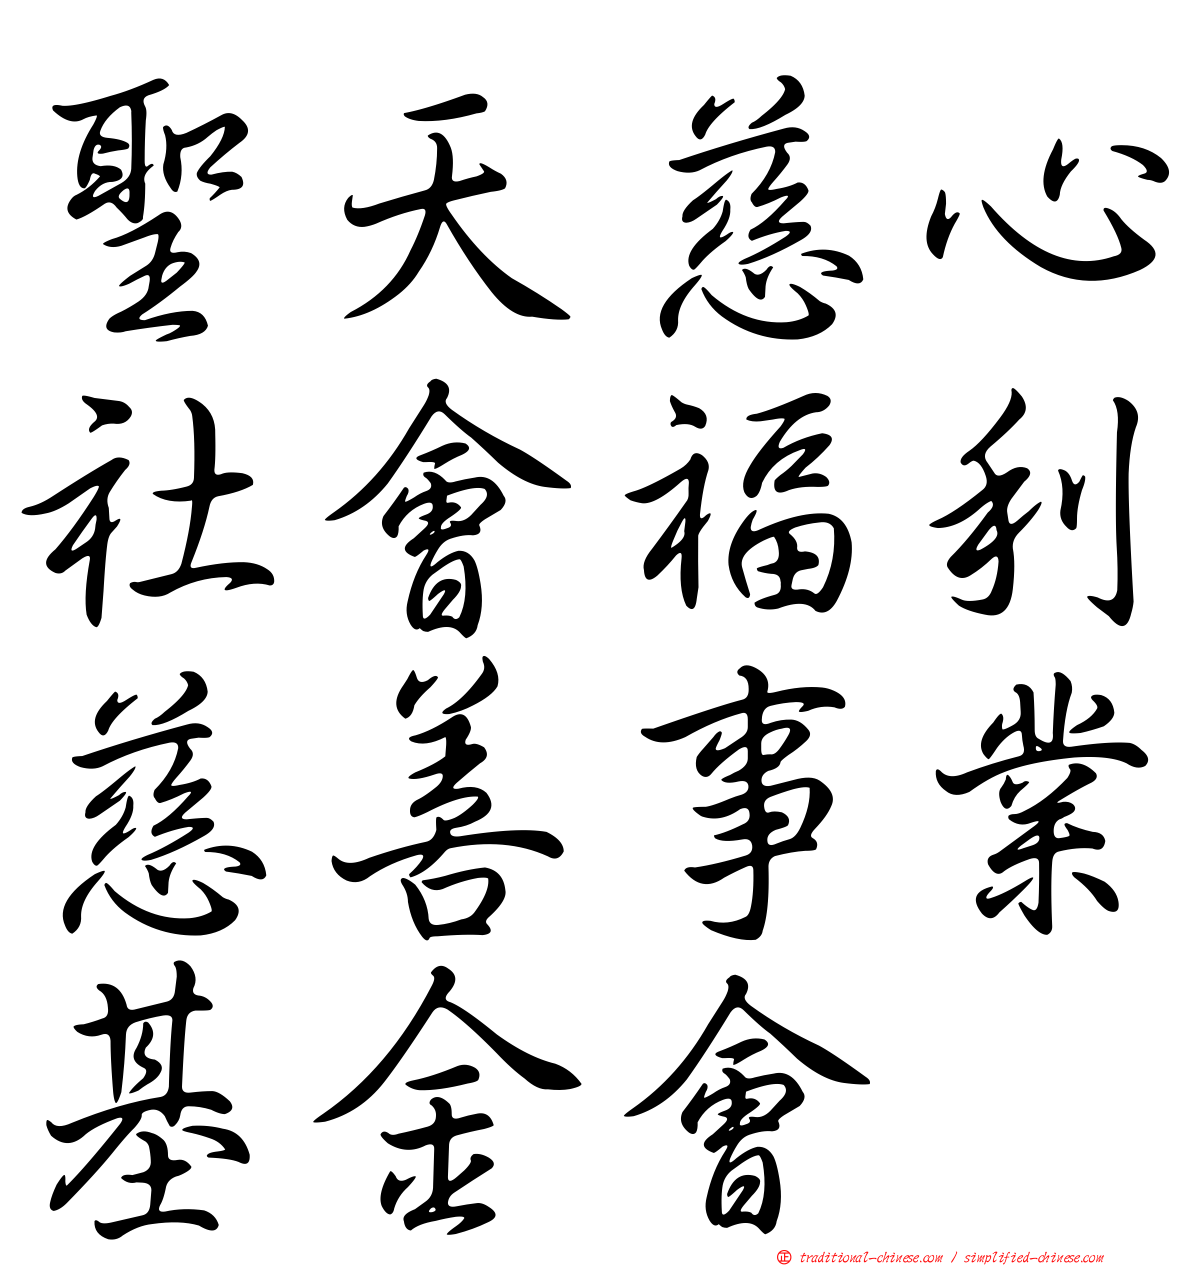 聖天慈心
社會福利
慈善事業
基金會
正 traditional-chinese.com / simplified-chinese.com